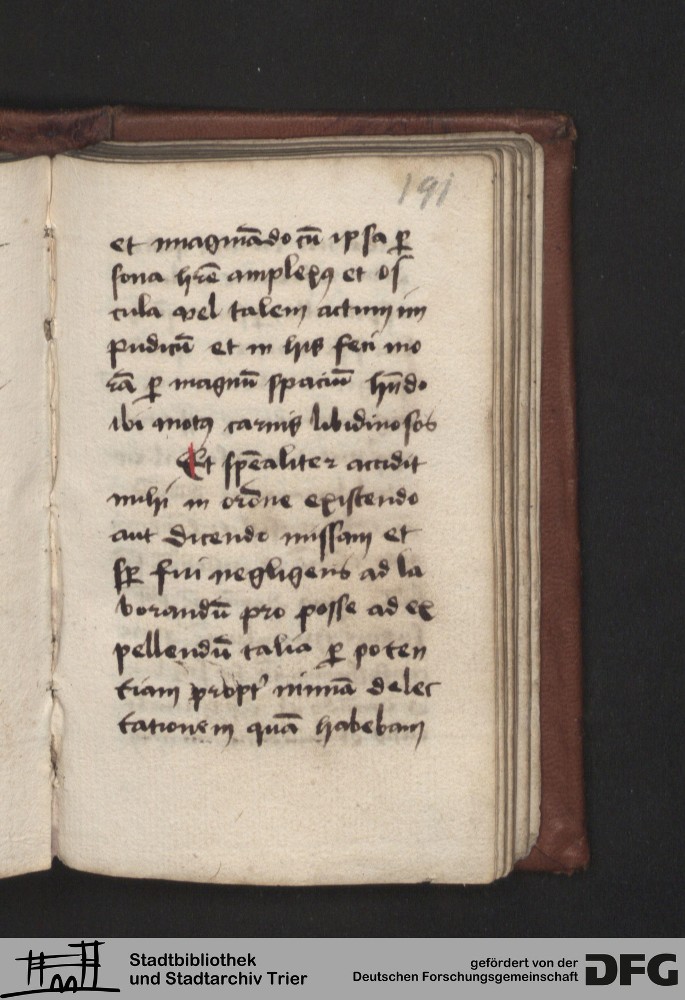 191
et ymaginādo cū ipsa ꝑ
sona hr̄e amplexꝰ et os
cula vel talem actum im
pudicū et in his feci mo
rā ꝑ magnū spaciū hn̄do
ibi motꝰ carnis libidinosos
Et spēaliter accidit
michi in orōne existendo
aut dicendo missam et
sꝑ fui negligens ad la
borandū pro posse ad ex
pellendū talia ꝑ poten
tiam propt' nimiā delec
tationem quā habebam
Stadtbibliothek
und Stadtarchiv Trier
gefördert von der
Deutschen Forschungsgemeinschaft
DFG